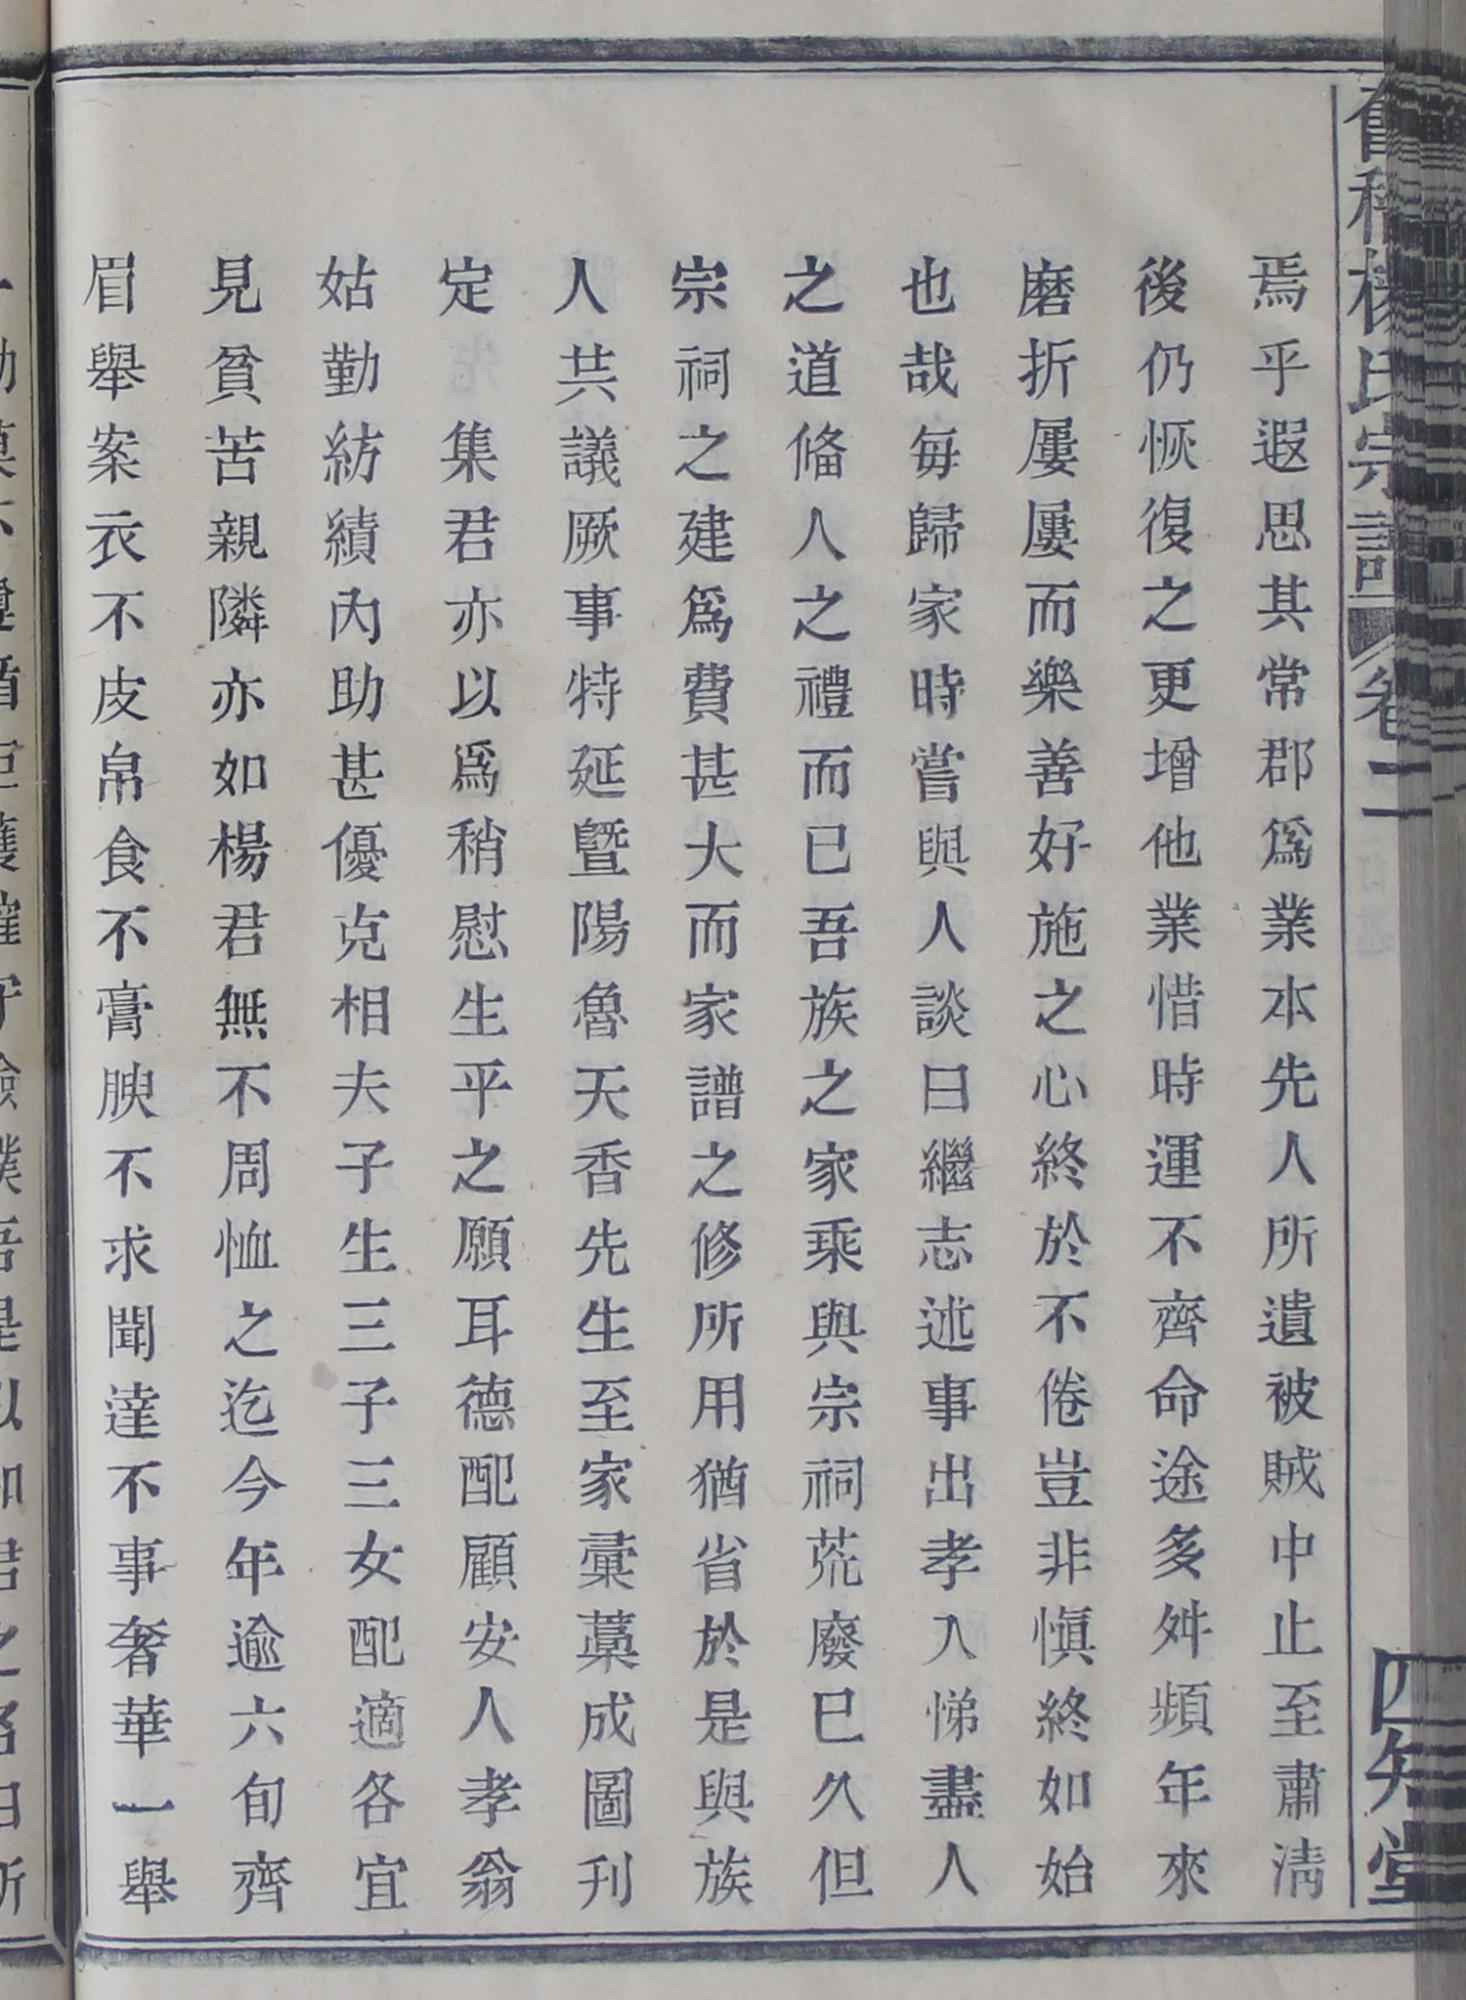 楊氏宗譜 卷二 四知堂
焉乎遐思其常郡爲業本先人所遺被賊中止至肅清
後仍恢復之更增他業惜時運不齊命途多舛頻年來
磨折屢屢而樂善好施之心終於不倦豈非愼終如始
也哉每歸家時嘗與人談曰繼志述事出孝入悌盡人
之道俻人之禮而已吾族之家乘與宗祠荒廢已久但
宗祠之建爲費甚大而家譜之修所用猶省於是與族
人共議厥事特延曁陽魯天香先生至家彚藁成圖刊
定 集君亦以爲稍慰生平之願耳德配顧安人孝翁
姑勤紡績內助甚優克相夫子生三子三女配適各宜
見貧苦親隣亦如楊君無不周恤之迄今年逾六旬齊
眉舉案衣不皮帛食不膏腴不求聞達不事奢華一舉